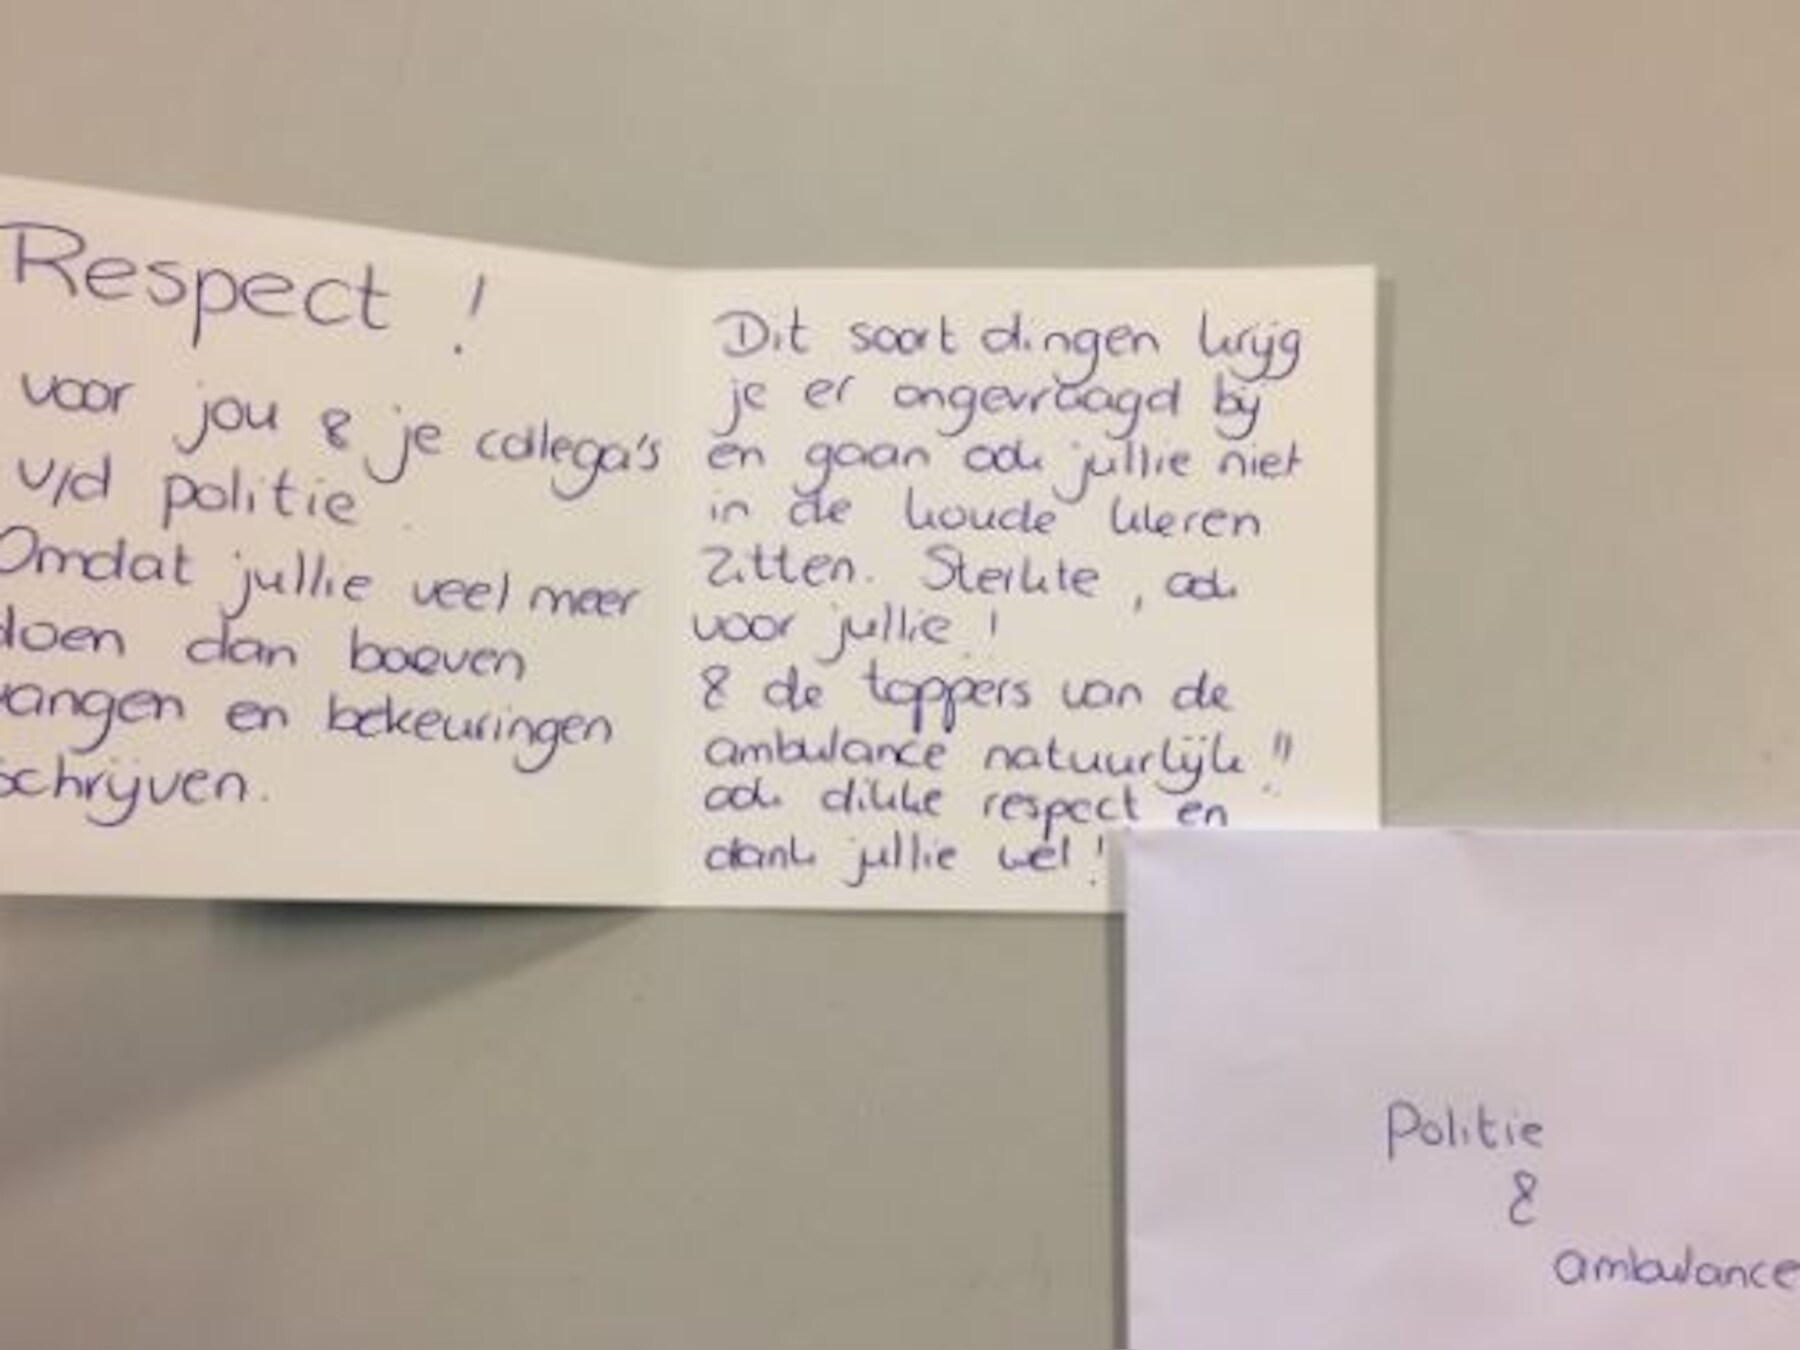 Respect !
voor jou & je collega's
v/d politie.
Omdat jullie veel meer
doen dan boeven
vangen en bekeuringen
schrijven.
Dit soort dingen krijg
je er ongevraagd bij
en gaan ook jullie niet
in de koude kleren
zitten. Sterkte, ook
voor jullie !
& de toppers van de
ambulance natuurlijk !!
ook dikke respect en
dank jullie wel !
Politie
&
ambulance